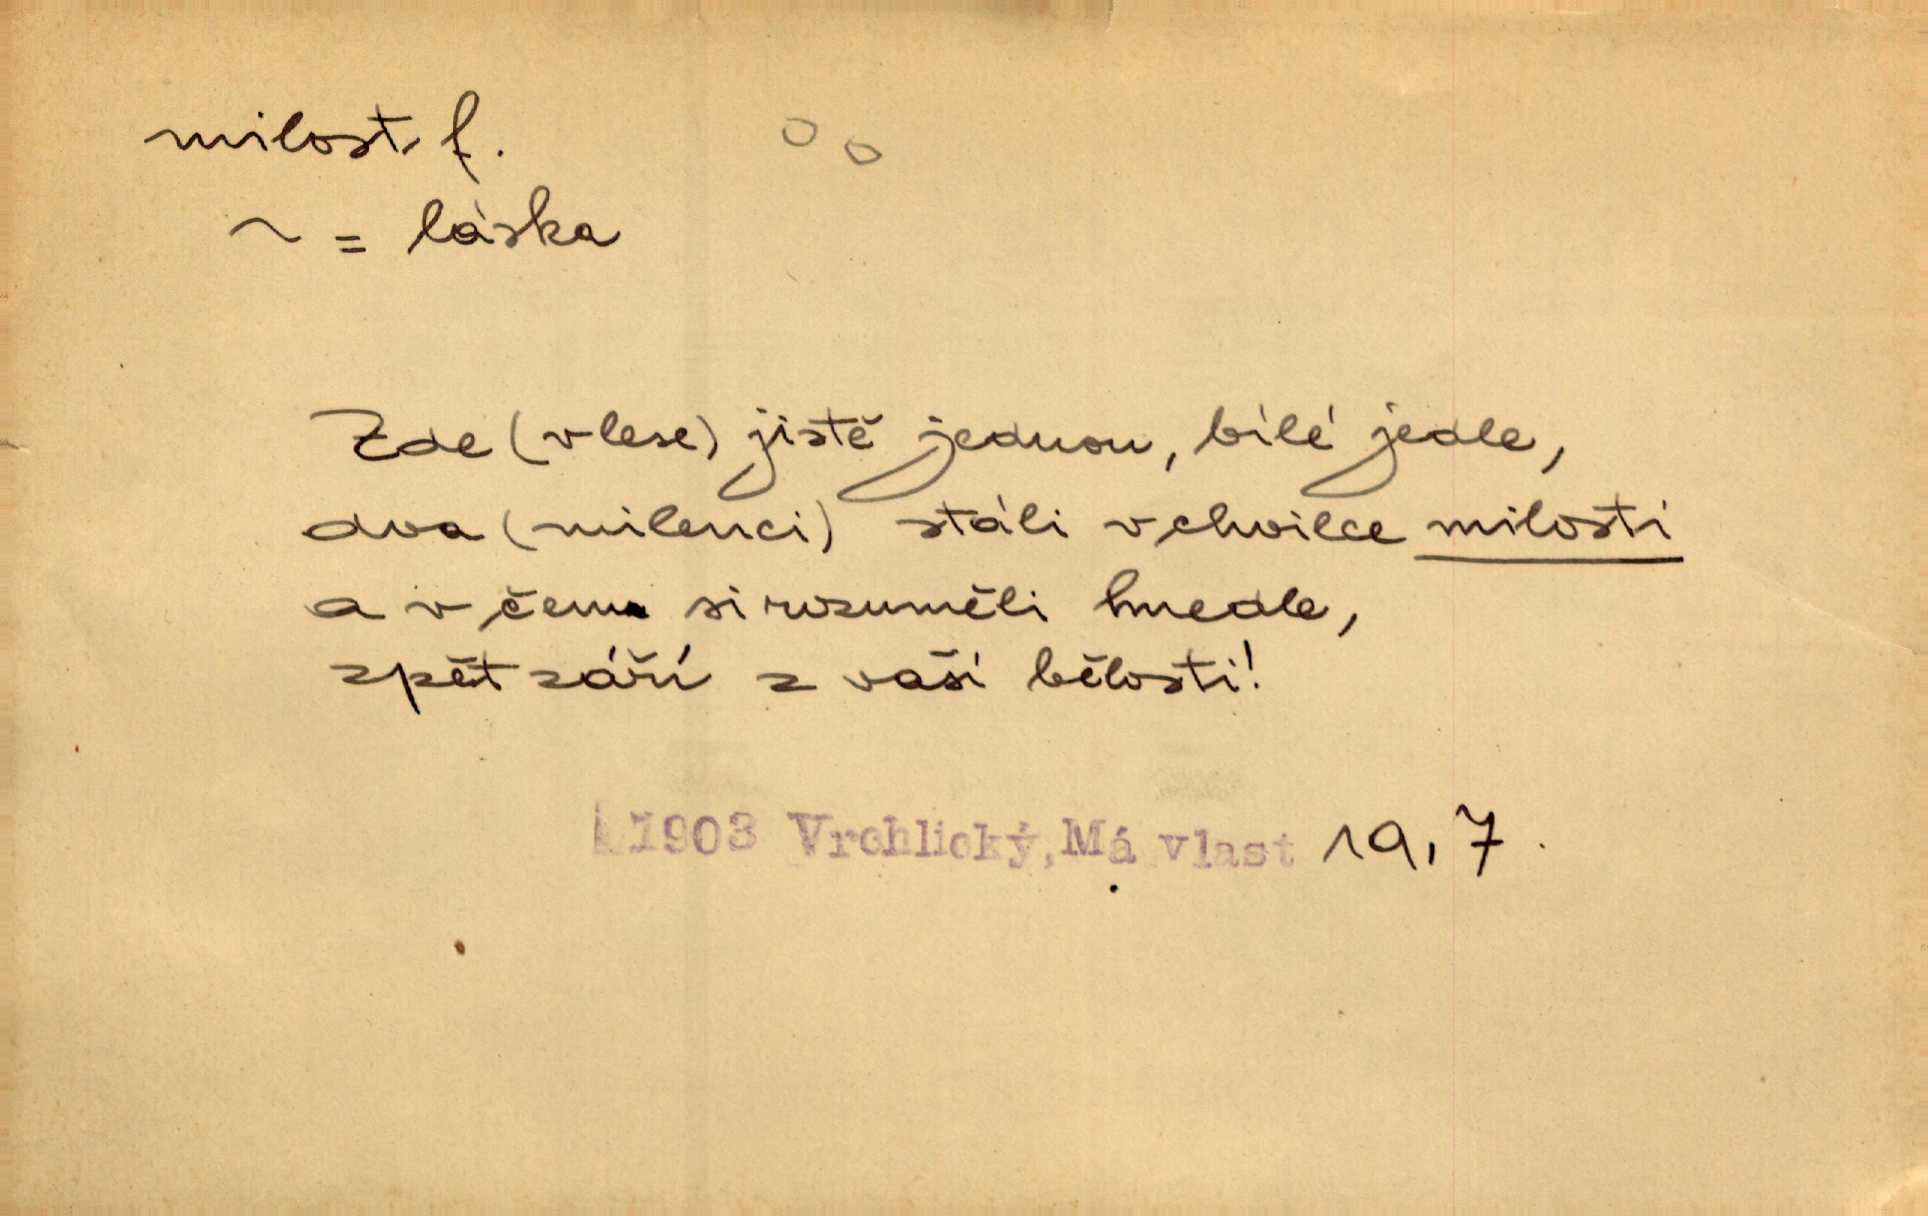 milost, f.
~ = láska
Zde (v lese) jistě jednou, bílé jedle,
dva (milenci) stáli v chvilce milosti
a v čem si rozuměli hnedle,
zpět září z vaší bělosti!
1903 Vrchlický, Má vlast 19, 7.